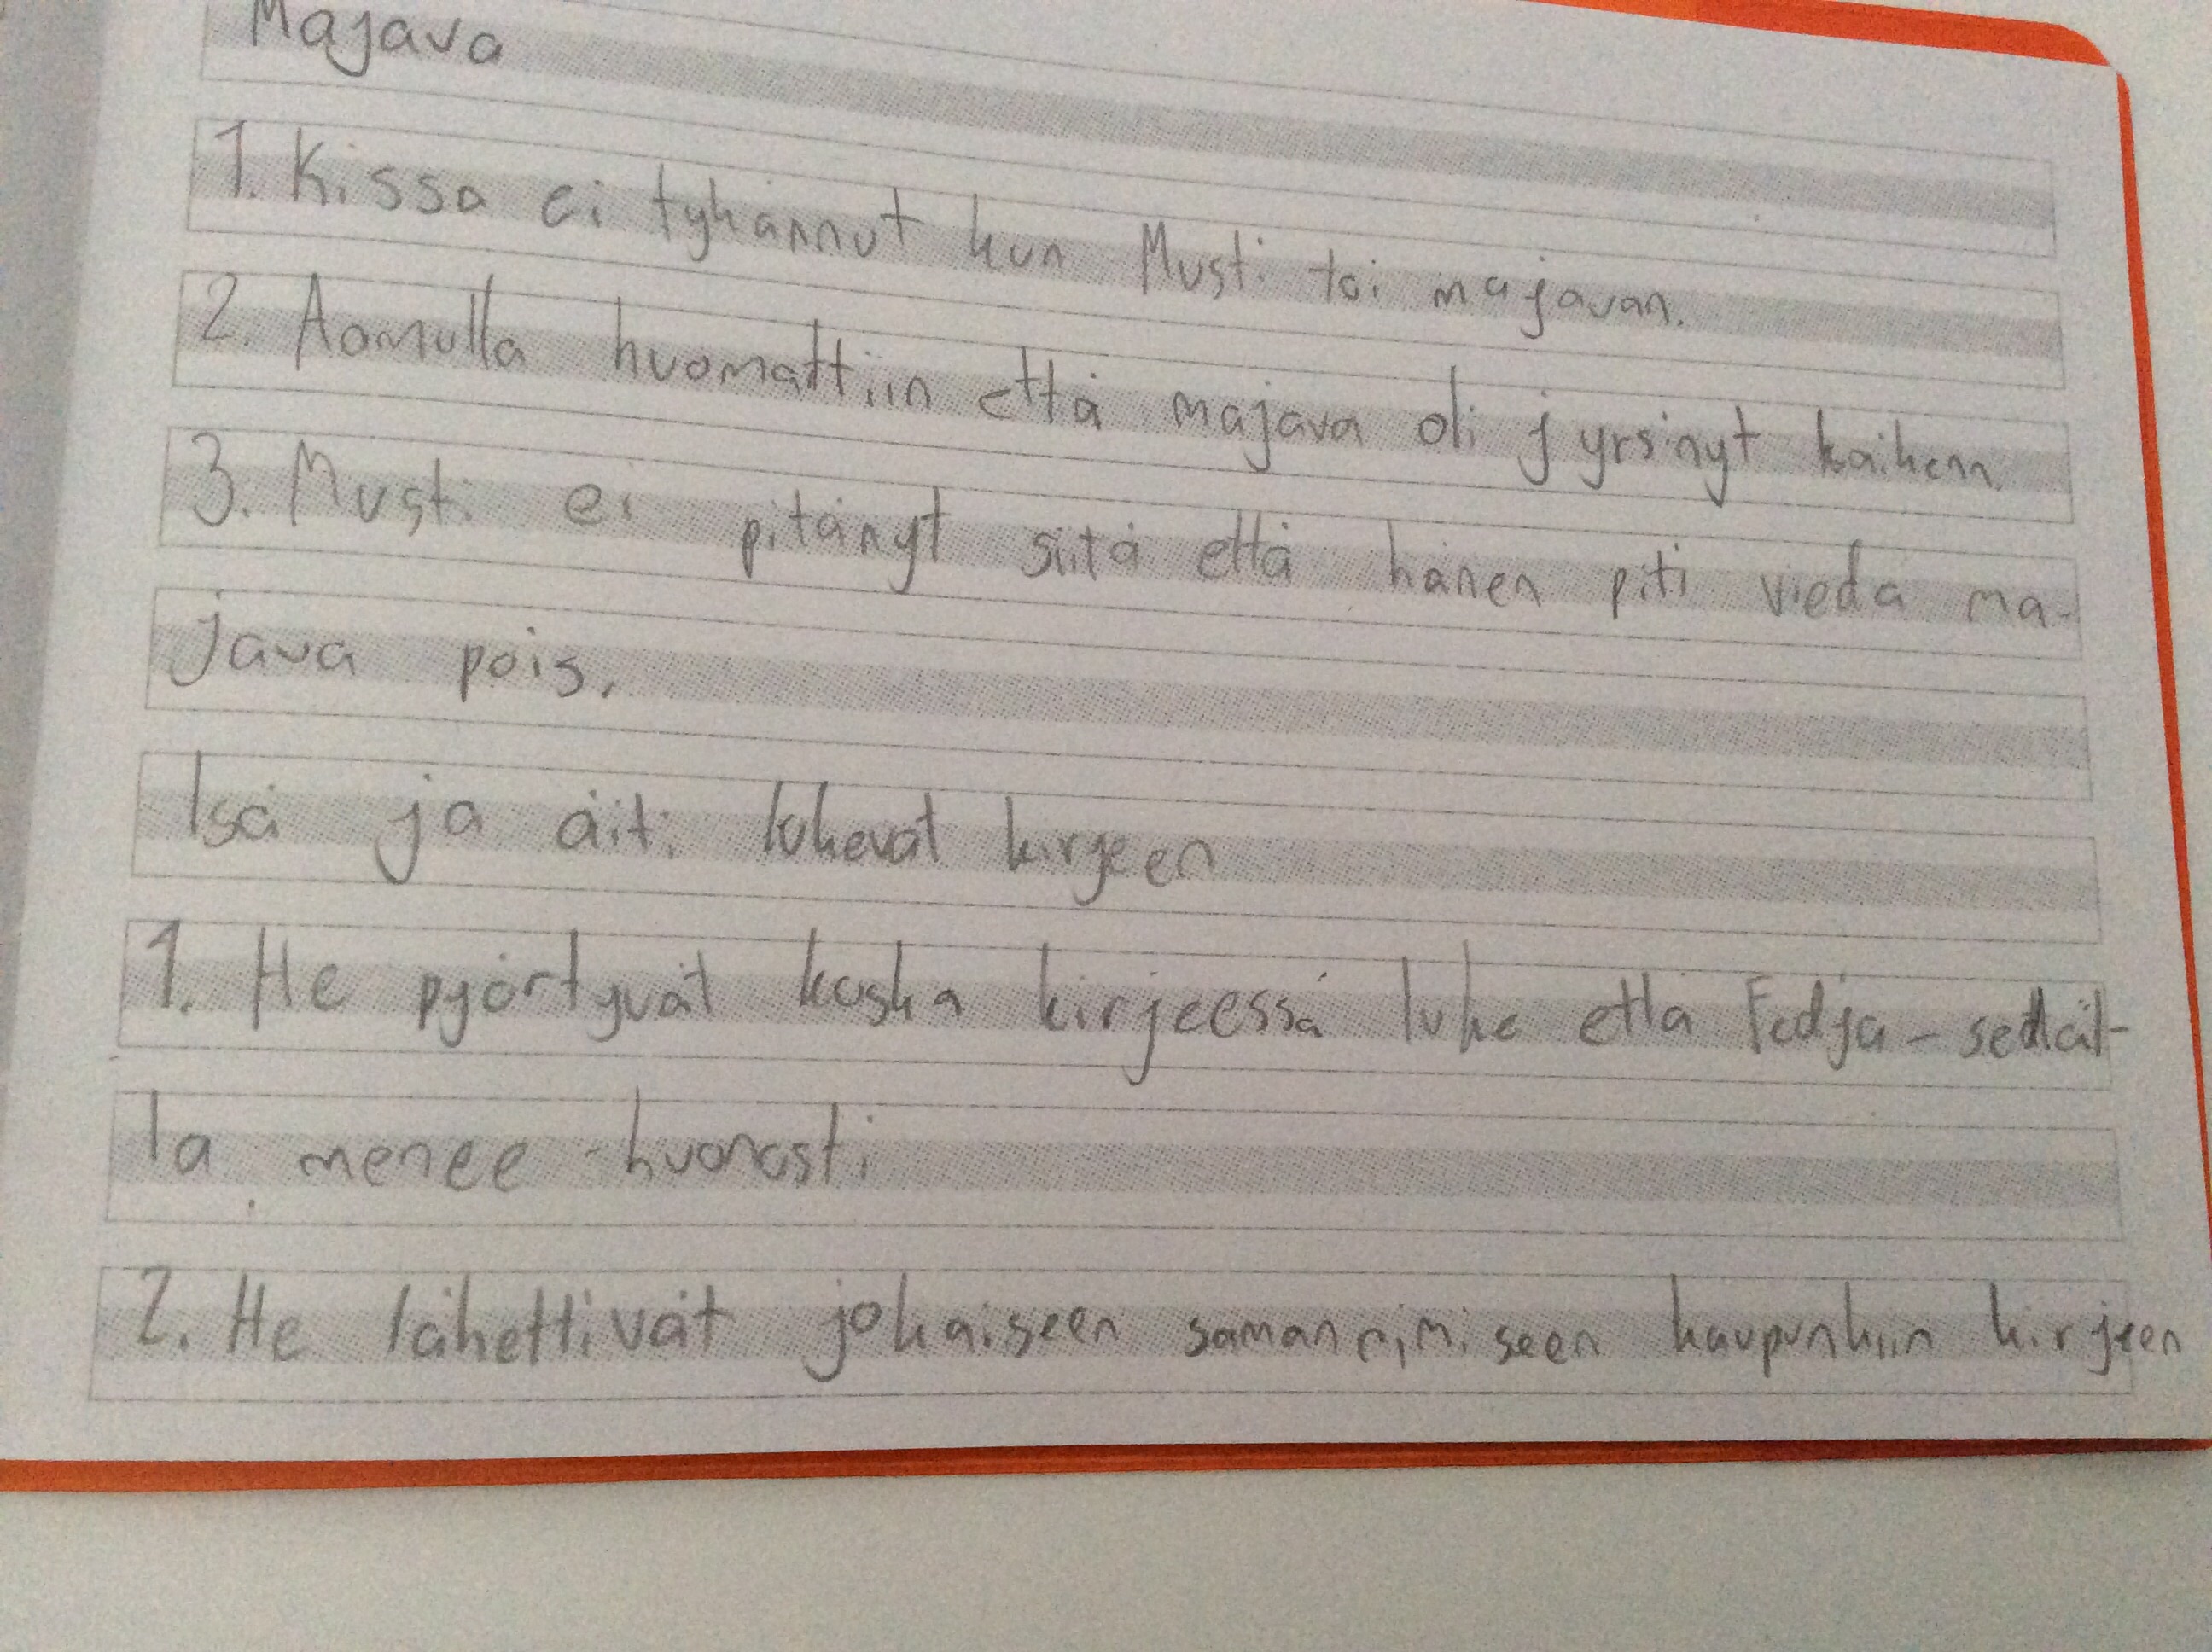 Majava
1. Kissa ei tyhännyt kun Musti toi majavan.
2. Aamulla huomattiin että majava oli jyrsinyt kaiken
3. Musti ei pitänyt siitä että hänen piti viedä ma-
java pois.
Isä ja äiti lukevat kirjeen
1. He pyörtyvät koska kirjeessä luke että Fedja-sedäl-
lä menee huonosti
2. He lähettivät jokaiseen samannimiseen kaupunkiin kirjeen